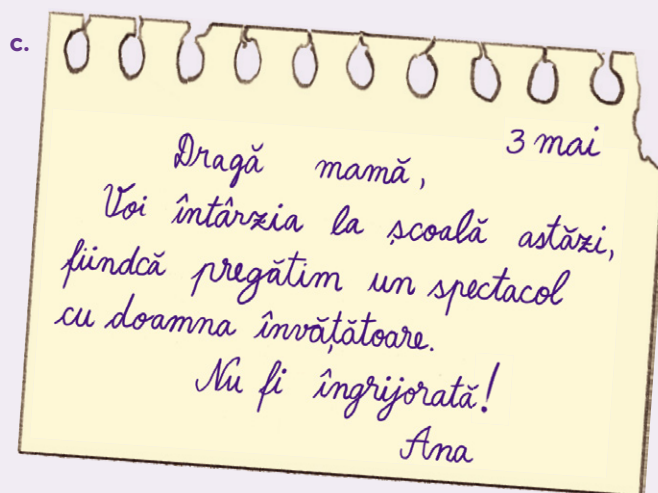 c.
3 mai
Dragă mamă,
Voi întârzia la școală astăzi,
fiindcă pregătim un spectacol
cu doamna învățătoare.
Nu fi îngrijorată!
Ana